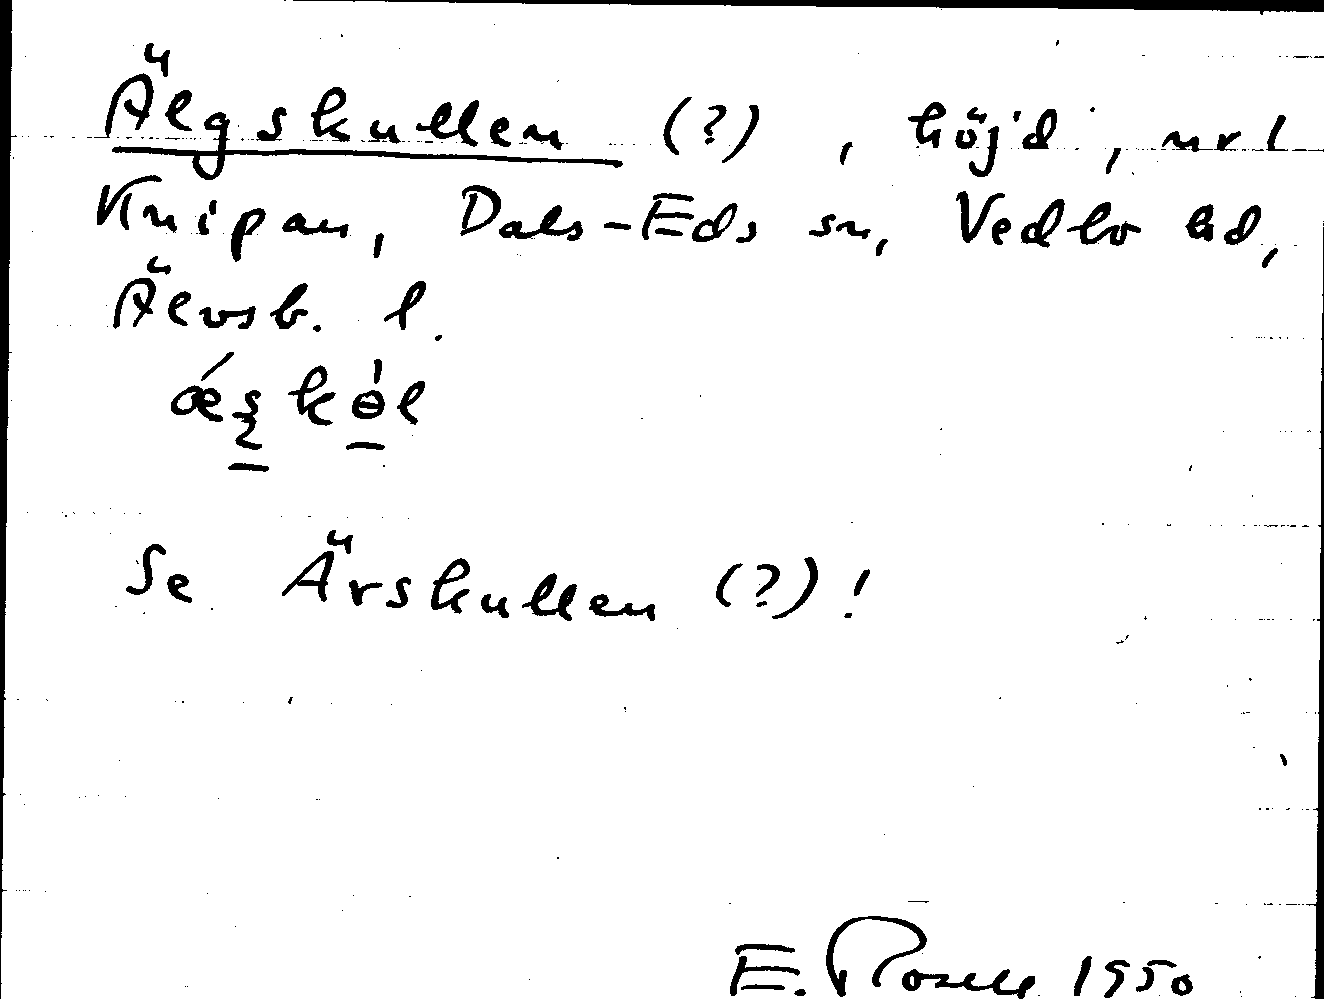 Älgskullen (?), höjd, nr 1
Knipan, Dals-Eds sn, Vedbo hd,
Älvsb. l.
Se Ärskullen (?)!
E. Rosell 1950